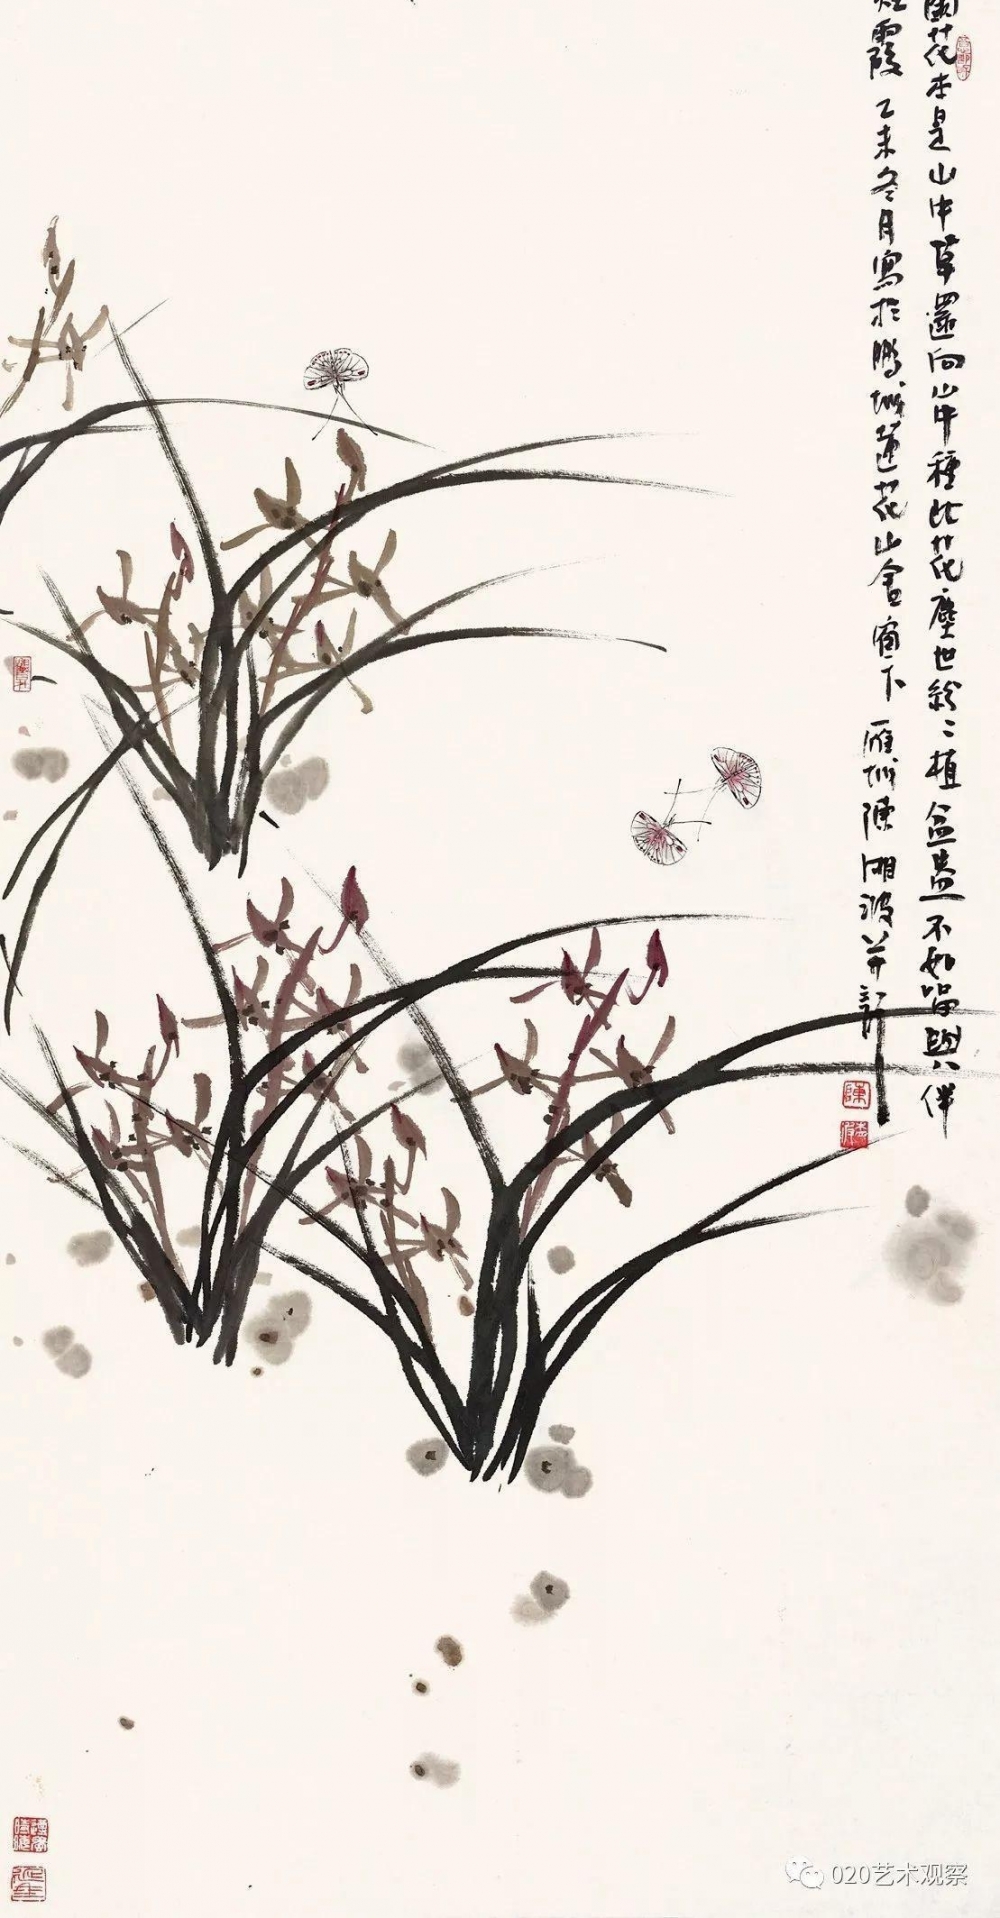 蘭花本是山中草還向山中種此花塵世紛〻植盆盎不如留與伴
煙霞 乙未冬月寫於鵬城蓮花山畫室窗下 雁城陳湘波并記
陳
020艺术观察